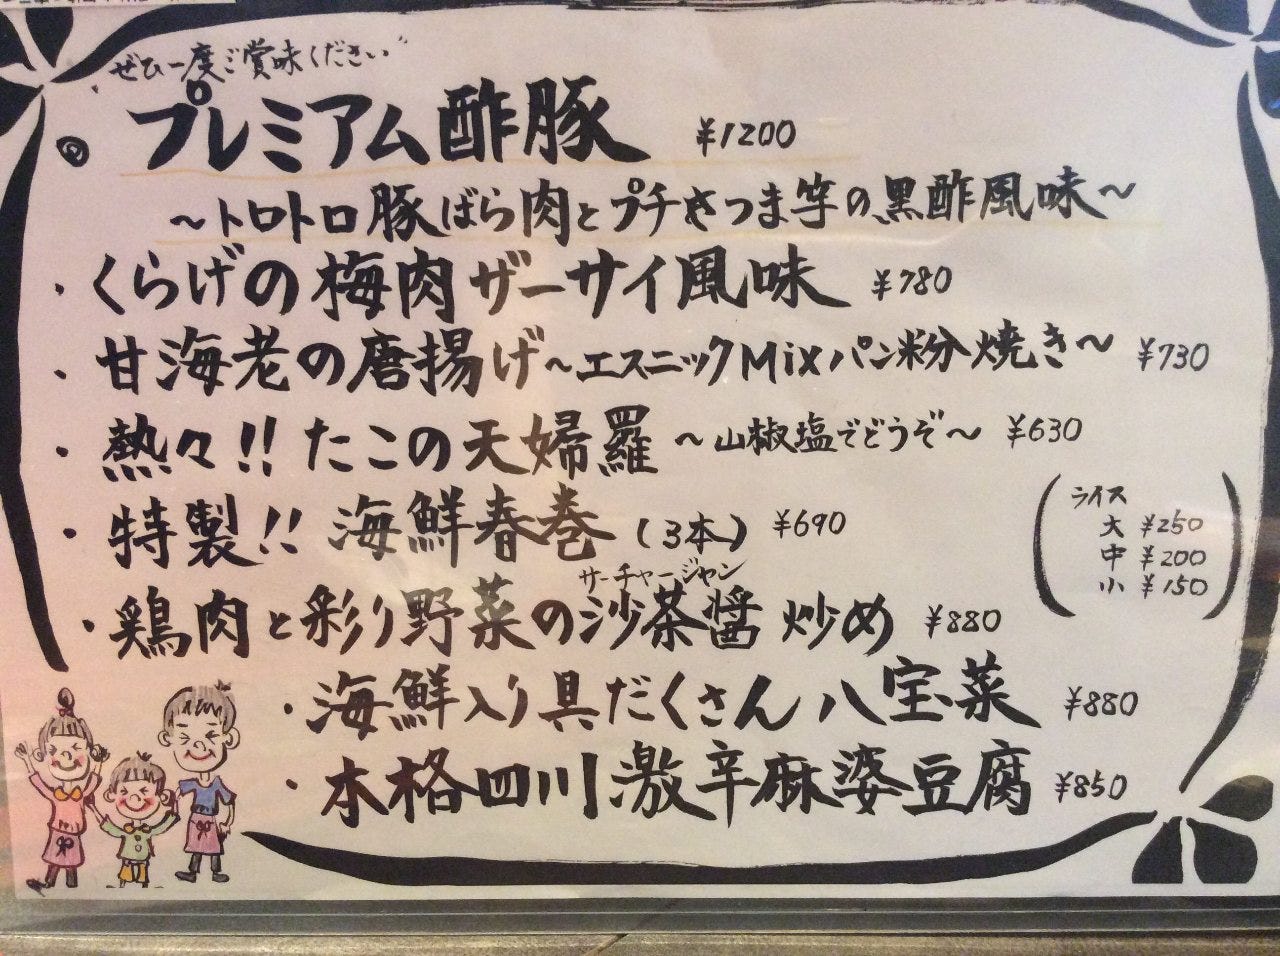 ぜひ一度ご賞味ください
◎ プレミアム酢豚 ¥1200
〜トロトロ豚ばら肉とプチさつま芋の黒酢風味〜
・くらげの梅肉ザーサイ風味 ¥780
・甘海老の唐揚げ〜エスニックMixパン粉焼き〜 ¥730
・熱々!! たこの天婦羅 〜山椒塩でどうぞ〜 ¥630
・特製!! 海鮮春巻 (3本) ¥690
ライス
大 ¥250
中 ¥200
小 ¥150
サーチャージャン
・鶏肉と彩り野菜の沙茶醤 炒め ¥880
・海鮮入り具だくさん八宝菜 ¥880
・本格四川激辛麻婆豆腐 ¥850